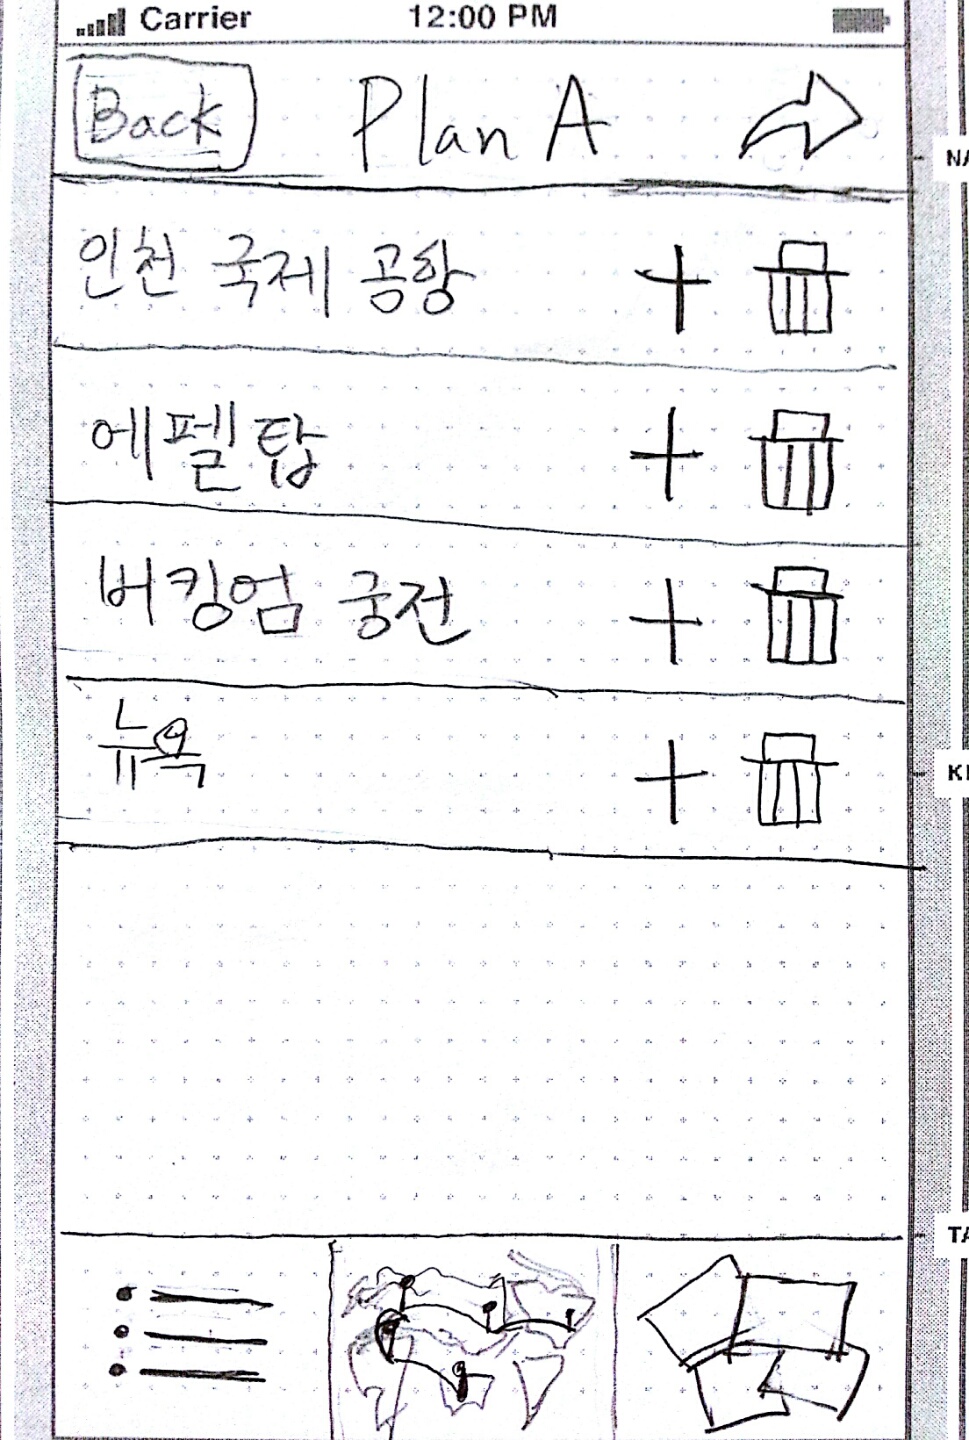 Carrier 12:00 PM
Back Plan A
NA
인천 국제 공항
에펠탑
버킹엄 궁전
뉴욕
KE
TA